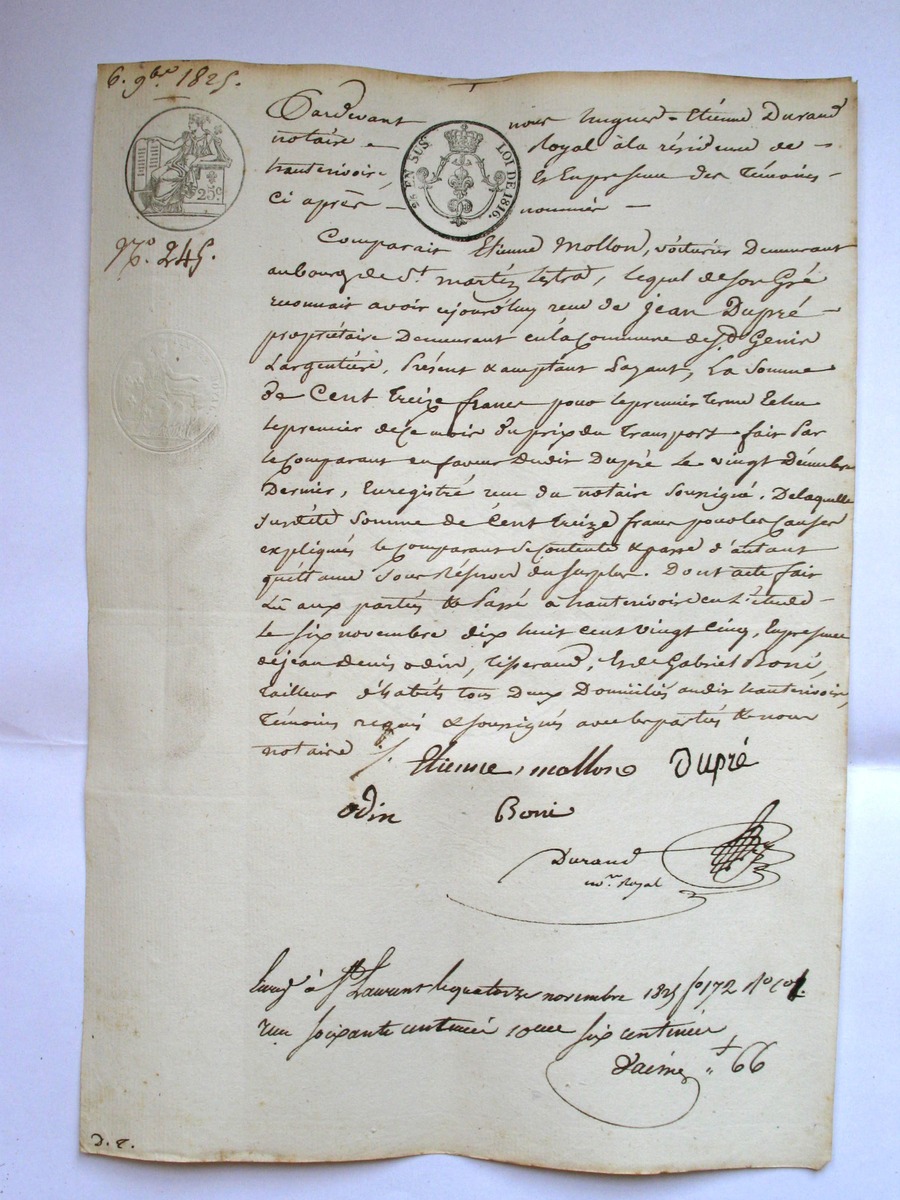 6. 9bre 1825.
Pardevant nous hugues-Etienne Durand
notaire Royal à la résidence de
hauterivoire, Et En presence des Témoins
Ci après nommés
25 EN SUS LOI DE 1816.
25c.
No. 245.
Comparait Etienne Mollon, voiturier Demeurant
au bourg de St. martin lestra, lequel de son Gré
reconnait avoir cejourd'huy recu de Jean Dupré
propriétaire Demeurant en la Commune de St. Genis
Largentière, Présent & acceptant payant, La Somme
De Cent treize francs pour le premier terme Echu
le premier de Ce mois Du prix du Transport fait Par
le Comparant en faveur Dudit Dupré Le vingt Décembre
Dernier, Enregistré recu du notaire soussigné. De laquelle
Susdite Somme de Cent treize francs pour les Causes
expliqués le Comparant se Contente & passe d'autant
quittance Sous Réserve du surplus. Dont acte fait
Lû aux parties & Passé à hauterivoire en L'étude
le six novembre dix huit cent vingt Cinq, En presence
de jean denis odin, Tisserand, Et de Gabriel Borri,
tailleur d'habits tous Deux Domiciliés audit hauterivoire,
Témoins requis & soussignés avec les parties & nous
notaire
Etienne mollon Dupré
odin Borri
Durand
nore. Royal
Enreg à St Laurent le quatorze novembre 1825 fo 172 Ro
recu soixante centimes 10eme six centimes
66
D. E.